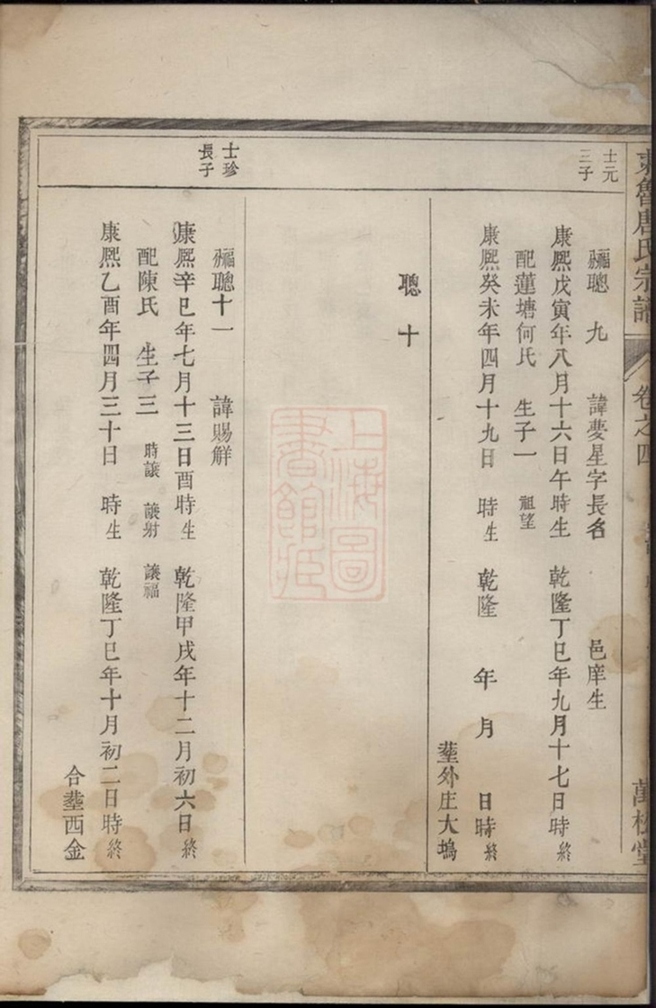 魯唐氏宗譜 卷之四
士元
三子
騸聰九 諱夢星字長名 邑庠生
康熙戊寅年八月十六日午時生 乾隆丁巳年九月十七日時終
配蓮塘何氏 生子一 祖望
康熙癸未年四月十九日 時生 乾隆 年 月 日時終
塟外庄大塢
聰十
士珍
長子
騸聰十一 諱賜觧
康熙辛巳年七月十三日酉時生 乾隆甲戌年十二月初六日終
配陳氏 生子三 時讓 讓射 讓福
康熙乙酉年四月三十日 時生 乾隆丁巳年十月初二日時終
合塟西金
上海圖書館藏